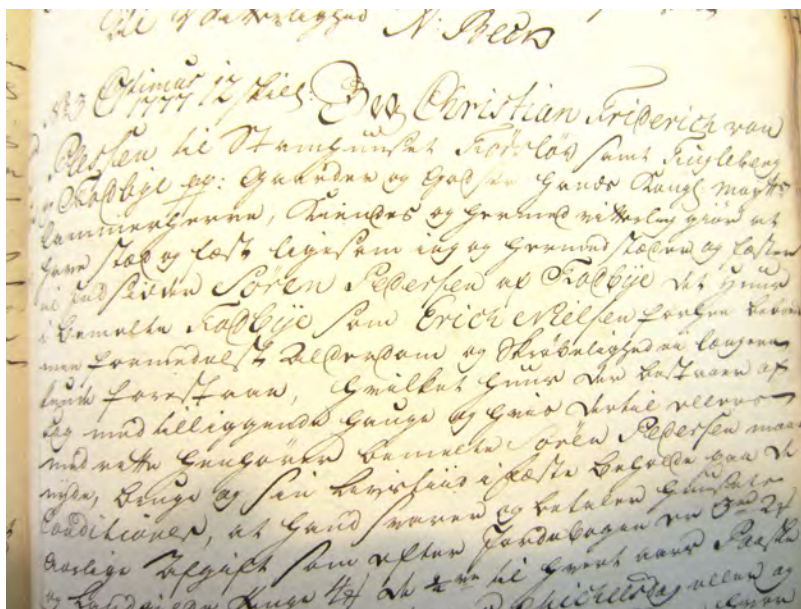 til Vitterlighed N: Beck
No 3 Optimus 1777 12 skill: Jeg Christian Friderich von
Plessen til Stamhuuset Fodsløv samt Kugleberg
og Kadbye pp: Gaarder og Godser Hands Kongl: Mayts
Cammerherre, Kiendes og hermed vitterlig giør at
have stæd og fæst ligesom ieg og hermed stæder og fæster
til Indsidder Søren Pedersen af Kadbye det Huus
i bemelte Kadbye som Erich Nielsen forhen beboede
men formedelst Alderdom og Skrøbelighed ei længere
kunde forestaae, hvilket Huus der bestaaer af
fag med tilliggende Hauge og hvis dertil ellers
med rette henhører bemelte Søren Pedersen maae
nyde, bruge og sin Livstiid i fæste beholde paa de
Conditioner, at hand svarer og betaler Huusets
Aarlige Afgift som efter Jordebogen er
og Penge 4 de til hvert aars Paaske
Michelsdag eller og